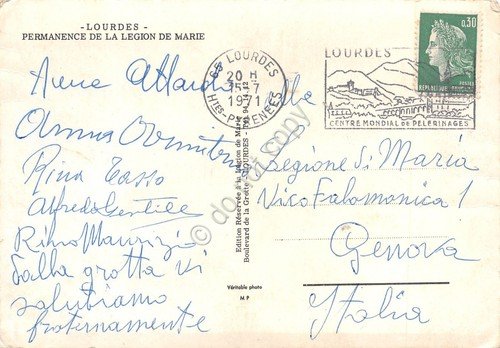 - LOURDES -
PERMANENCE DE LA LEGION DE MARIE
65 LOURDES
20 H
15-7
1971
HTES-PYRENEES
LOURDES
CENTRE MONDIAL DE PELERINAGES
0,30
REPUBLIQUE FRANCAISE
POSTES
Anna
Rina Tasso
Alfredo Gentile
Rino Maurizio
Dalla grotta vi
salutiamo
fraternamente
Alla
Legione di Maria
Vico Falamonica 1
Genova
Italia
Edition Réservée à la Légion de Marie
Boulevard de la Grotte - LOURDES - Tél. 94
Véritable photo
M P